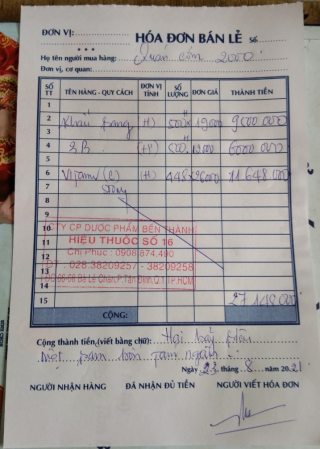 ĐƠN VỊ:
HÓA ĐƠN BÁN LẺ Số
Họ tên người mua hàng: Quán cơm 2000đ
Đơn vị, cơ quan:
SỐ TT TÊN HÀNG - QUY CÁCH ĐƠN VỊ TÍNH SỐ LƯỢNG ĐƠN GIÁ THÀNH TIỀN
1
2 Khẩu trang (H) 9000000
3
4 3B 6000000
5
6 Vitamin (C) (H) 448 x 26000 11648000
7 sủng
8
9
10 CTY CP DƯỢC PHẨM BẾN THÀNH
11 HIỆU THUỐC SỐ 16
12 Chị Phúc: 0908.874.490
13 ĐT: 028.38209257 - 38209258
14 P.Tân Định, Q.1, TP.HCM
15 27148000
CỘNG:
Cộng thành tiền (viết bằng chữ): Hai bảy triệu
một trăm bốn tám ngàn
Ngày 23 tháng 8 năm 2021
NGƯỜI NHẬN HÀNG ĐÃ NHẬN ĐỦ TIỀN NGƯỜI VIẾT HÓA ĐƠN